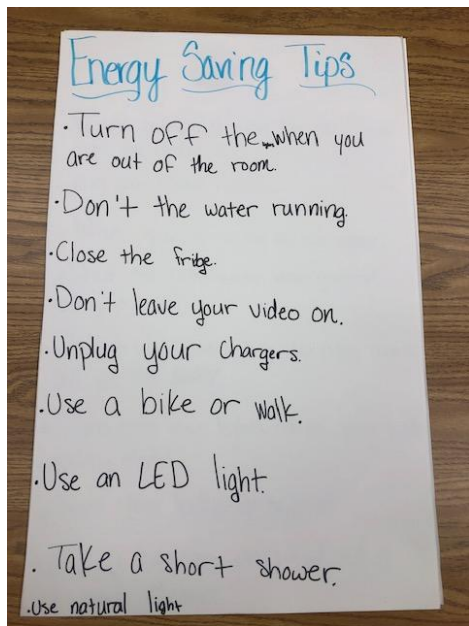 Energy Saving Tips
·Turn off the when you
are out of the room.
·Don't the water running.
·Close the fridge.
·Don't leave your video on.
·Unplug your chargers.
·Use a bike or walk.
·Use an LED light.
·Take a short shower.
·Use natural light